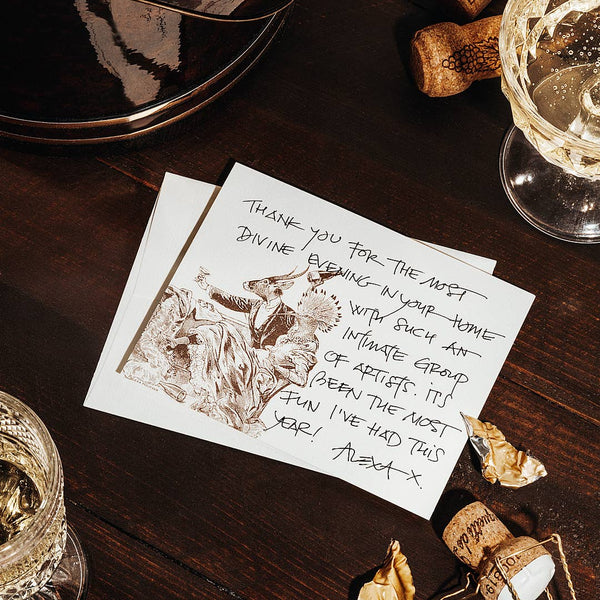 THANK YOU FOR THE MOST
DIVINE EVENING IN YOUR HOME
WITH SUCH AN
INTIMATE GROUP
OF ARTISTS. IT'S
BEEN THE MOST
FUN I'VE HAD THIS
YEAR!
ALEXA X.